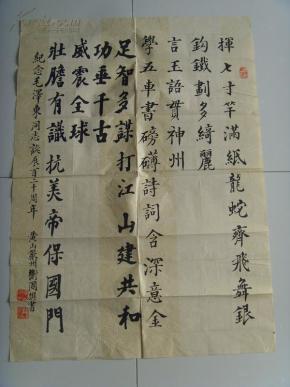 揮七寸竿滿紙龍蛇齊飛舞銀
鈎鐵劃多綺麗
言王語貫神州
學五車書磅礴詩詞含深意金
足智多謀打江山建共和
功垂千古
威震全球
壯膽有識抗美帝保國門
紀念毛澤東同志誕辰百二十周年